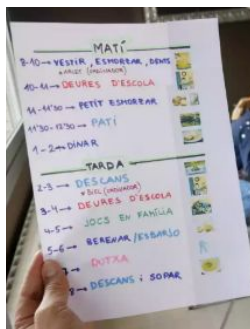 MATÍ
8-10 → VESTIR, ESMORZAR, DENTS
10-11 → DEURES D'ESCOLA
11-11'30 → PETIT ESMORZAR
11'30-12'30 → PATI
1-2 → DINAR
TARDA
2-3 → DESCANS
3-4 → DEURES D'ESCOLA
4-5 → JOCS EN FAMÍLIA
5-6 → BERENAR/ESBARJO
7 → DUTXA
8 → DESCANS i SOPAR